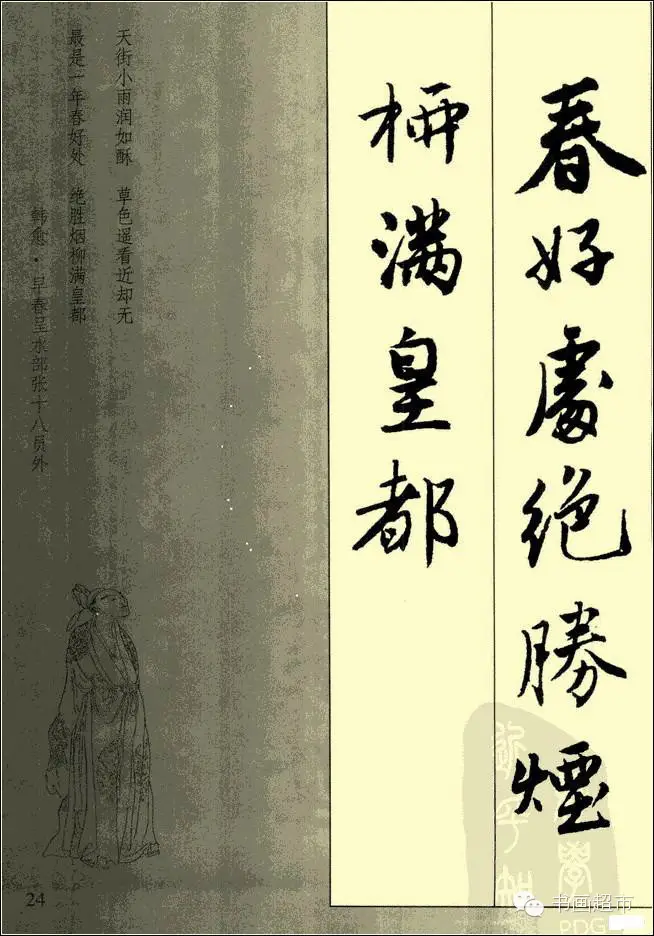 春好處絕勝煙
柳滿皇都
天街小雨润如酥　草色遥看近却无
最是一年春好处　绝胜烟柳满皇都
韩愈·早春呈水部张十八员外
24
书画超市
PDG